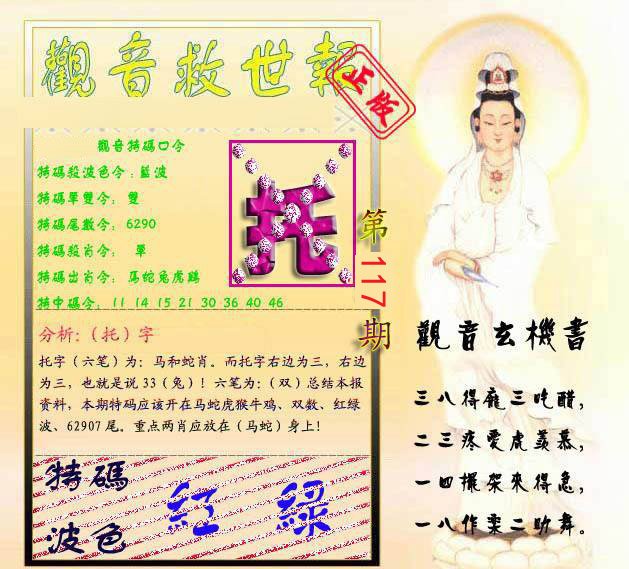 觀音救世報
正版
觀音特碼口令
特碼殺波色令：藍波
特碼單雙令：雙
特碼尾數令：6290
特碼殺肖令：單
特碼出肖令：馬蛇兔虎鷄
特中碼令：11 14 15 21 30 36 40 46
托
第117期
分析：（托）字
托字（六笔）为：马和蛇肖。而托字右边为三，右边
为三，也就是说33（兔）！六笔为：（双）总结本报
资料，本期特码应该开在马蛇虎猴牛鸡、双数、红绿
波、62907尾。重点两肖应放在（马蛇）身上！
特碼
波色
紅 綠
觀音玄機書
三八得寵三吃醋，
二三疼愛虎羨慕，
一四擺架來得急，
一八作案二助舞。